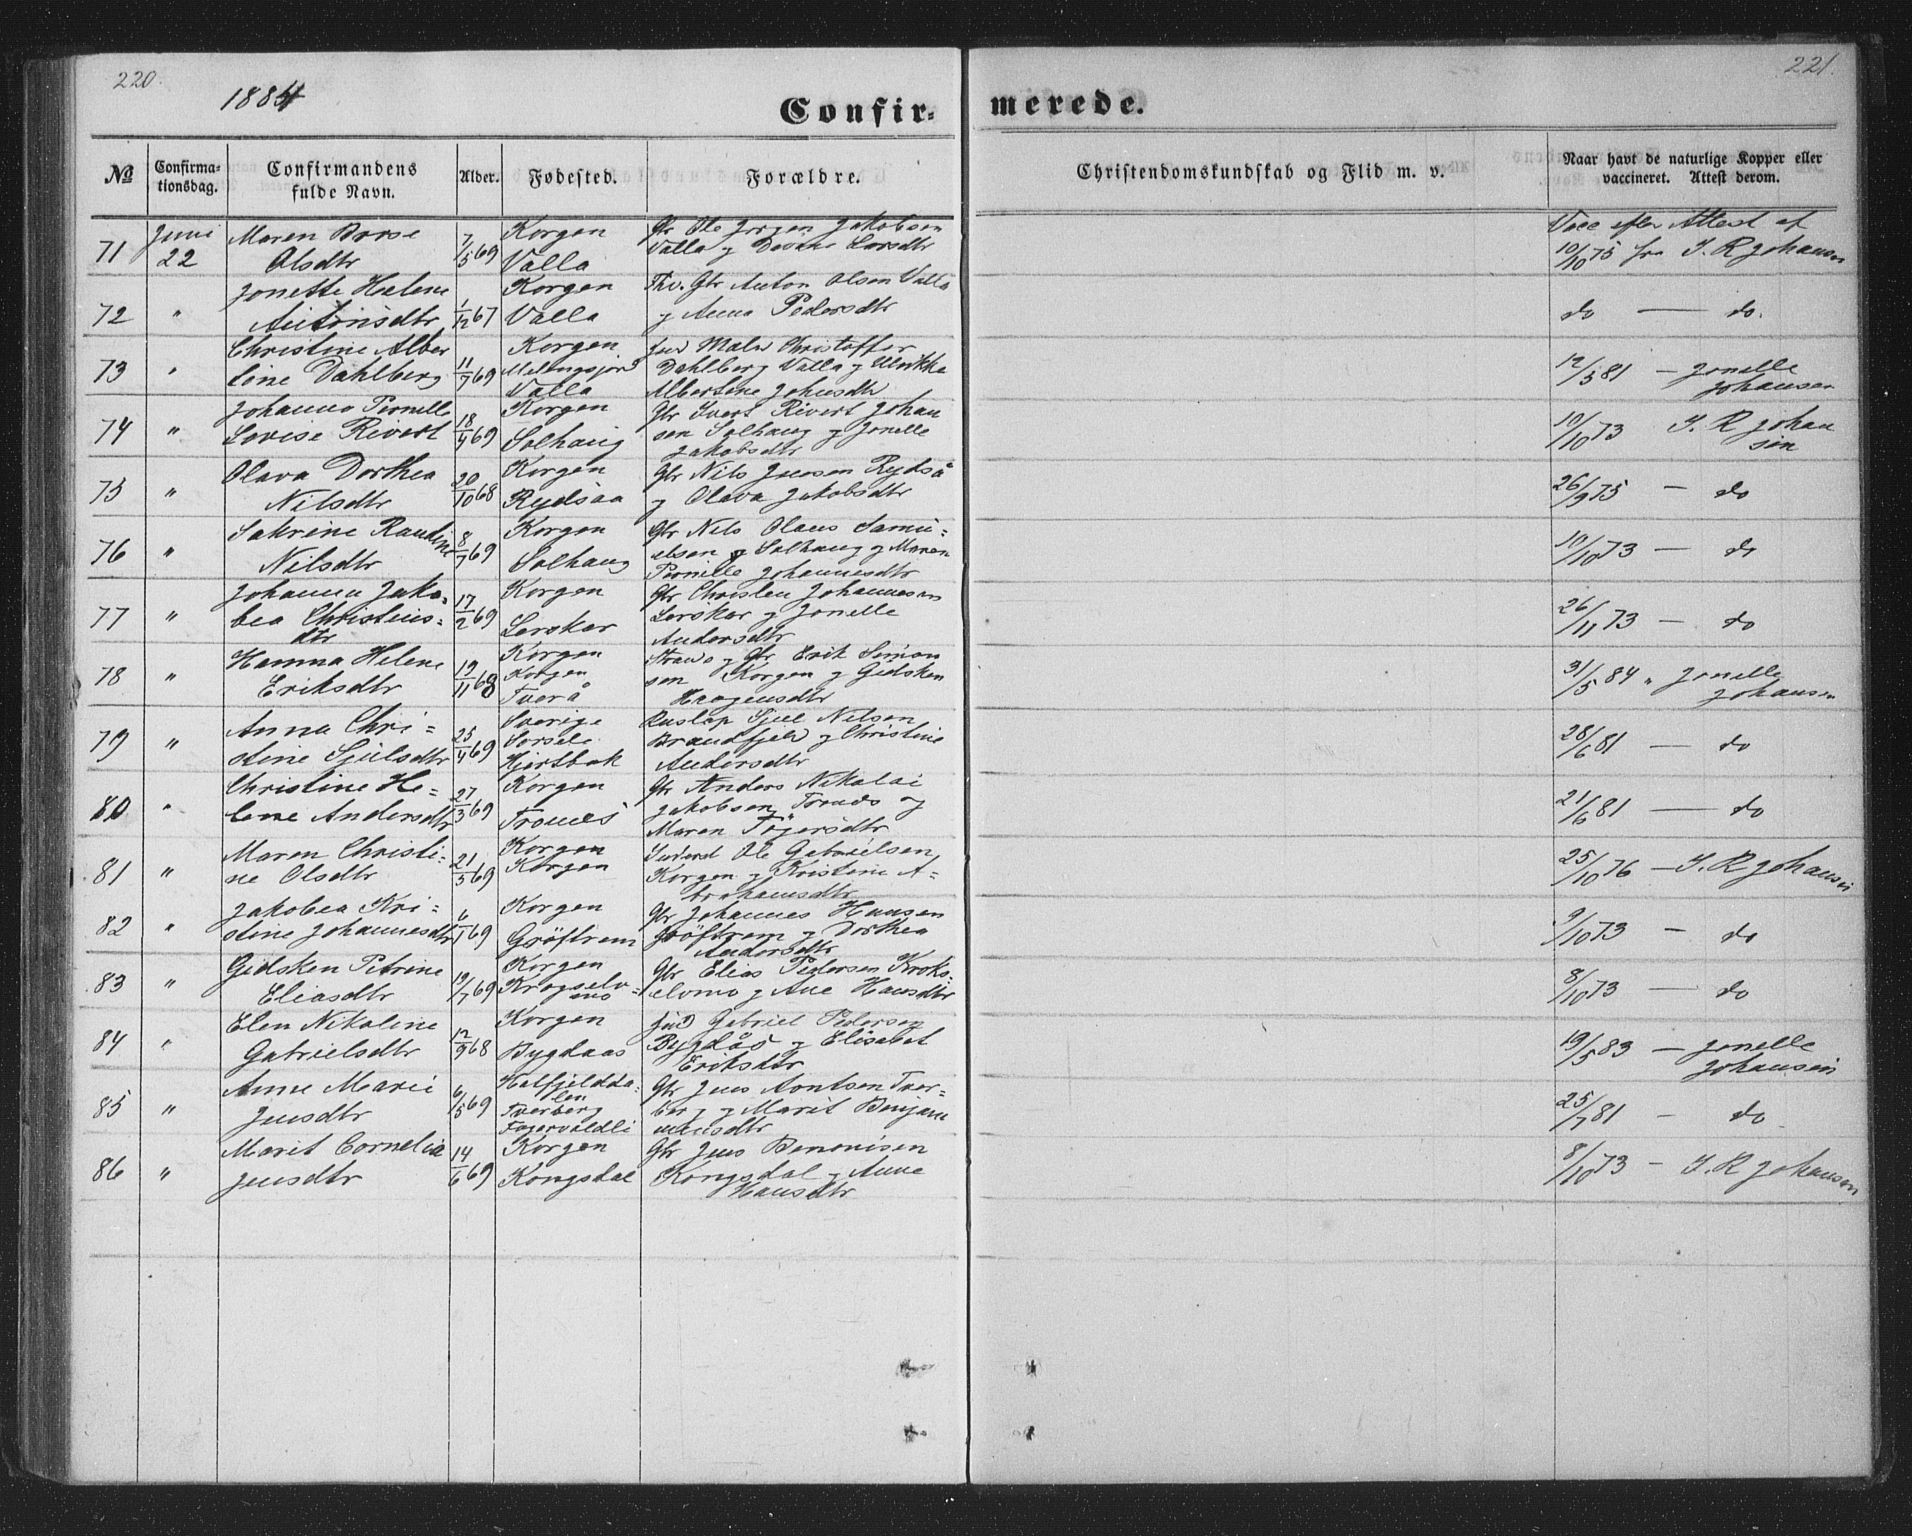 220.
221.
1884
Confir=
merede.
№
Confirma-
tionsdag.
Confirmandens
fulde Navn.
Alder.
Fødested.
Forældre.
Christendomskundskab og Flid m. v.
Naar havt de naturlige Kopper eller
vaccineret. Attest derom.
71 Juni 22 Maren
Olsdtr 7/5 69 Korgen
Valla Gbr Ole Jørgen Jakobsen
Valla og Larsdtr
Vacc efter Attest af
10/10 75 fra I. R Johansen
72 " Jonette Helene
Antonsdtr 1/12 67 Korgen
Valla Thv. Gbr Anton Olsen Valla
og Anna Pedersdtr
do — do.
73 " Christine Alber
tine Dahlberg 11/7 69 Korgen
Valla Christoffer
Dahlberg Valla og Ulrikke
Albertine Johnsdtr
12/5 81 — Jonelle
Johansen
74 " Johanna Pernelle
Lovise Rivert 18/4 69 Korgen
Solhaug Gbr Ivert Rivert Johan
sen Solhaug og Jonelle
Jakobsdtr
10/10 73 I. R Johan
sen
75 " Olava Dorthea
Nilsdtr 20/10 68 Korgen
Rydsaa Gbr Nils Jensen Rydså
og Olava Jakobsdtr
26/9 75 — do
76 " Sakrine Randine
Nilsdtr 8/7 69 Korgen
Solhaug Gbr Nils Olaus Samu=
elsen Solhaug og Maren
Pernille Johannesdtr
10/10 73 — do
77 " Johanna Jako=
bea Christens=
dtr 17/2 69 Korgen
Lerskar Gbr Christen Johannesen
Lerskar og Jonelle
Andersdtr
26/11 73 — do
78 " Hanna Helene
Eriksdtr 19/11 68 Korgen
Korgen
Tverå og Gbr Erik Simon
sen Korgen og Gidsken
Haagensdtr
31/5 84 " Jonelle
Johansen
79 " Anna Chri=
stine Sjulsdtr 25/4 69 Sverige
Sorsele
Sjul Nilsen
Brandfjeld og Christine
Andersdtr
28/6 81 — do
80 " Christine He=
lene Andersdtr 27/3 69 Korgen
Trones Gbr Anders Nikolai
Jakobsen og
Maren
21/6 81 — do
81 " Maren Christi=
ne Olsdtr 21/5 69 Korgen
Korgen Inderst Ole Gabrielsen
Korgen og Kristine A=
brahamsdtr
25/10 76 — I. R Johansen
82 " Jakobea Kri=
stine Johannesdtr 6/1 69 Korgen
Grøftrem Gbr Johannes Hansen
Grøftrem og Dorthea
Andersdtr
9/10 73 — do
83 " Gidsken Petrine
Eliasdtr 19/7 69 Korgen
Krogselv=
mo Gbr Elias Pedersen Kroks=
elvmo og Ane Hansdtr
8/10 73 — do
84 " Elen Nikoline
Gabrielsdtr 12/9 68 Korgen
Bygdaas Gabriel Pedersen
Bygdås og Elisabet
Eriksdtr
19/5 83 — Jonelle
Johansen
85 " Anne Marie
Jensdtr 6/5 69 Hatfjeldda=
len
Tverberg
Gbr Jens Arntsen Tver=
berg og Marit Benjam
insdtr
25/7 81 — do
86 " Marit Cornelia
Jensdtr 14/6 69 Korgen
Kongsdal Gbr Jens Benonisen
Kongsdal og Anne
Hansdtr
8/10 73 — I. R Johansen